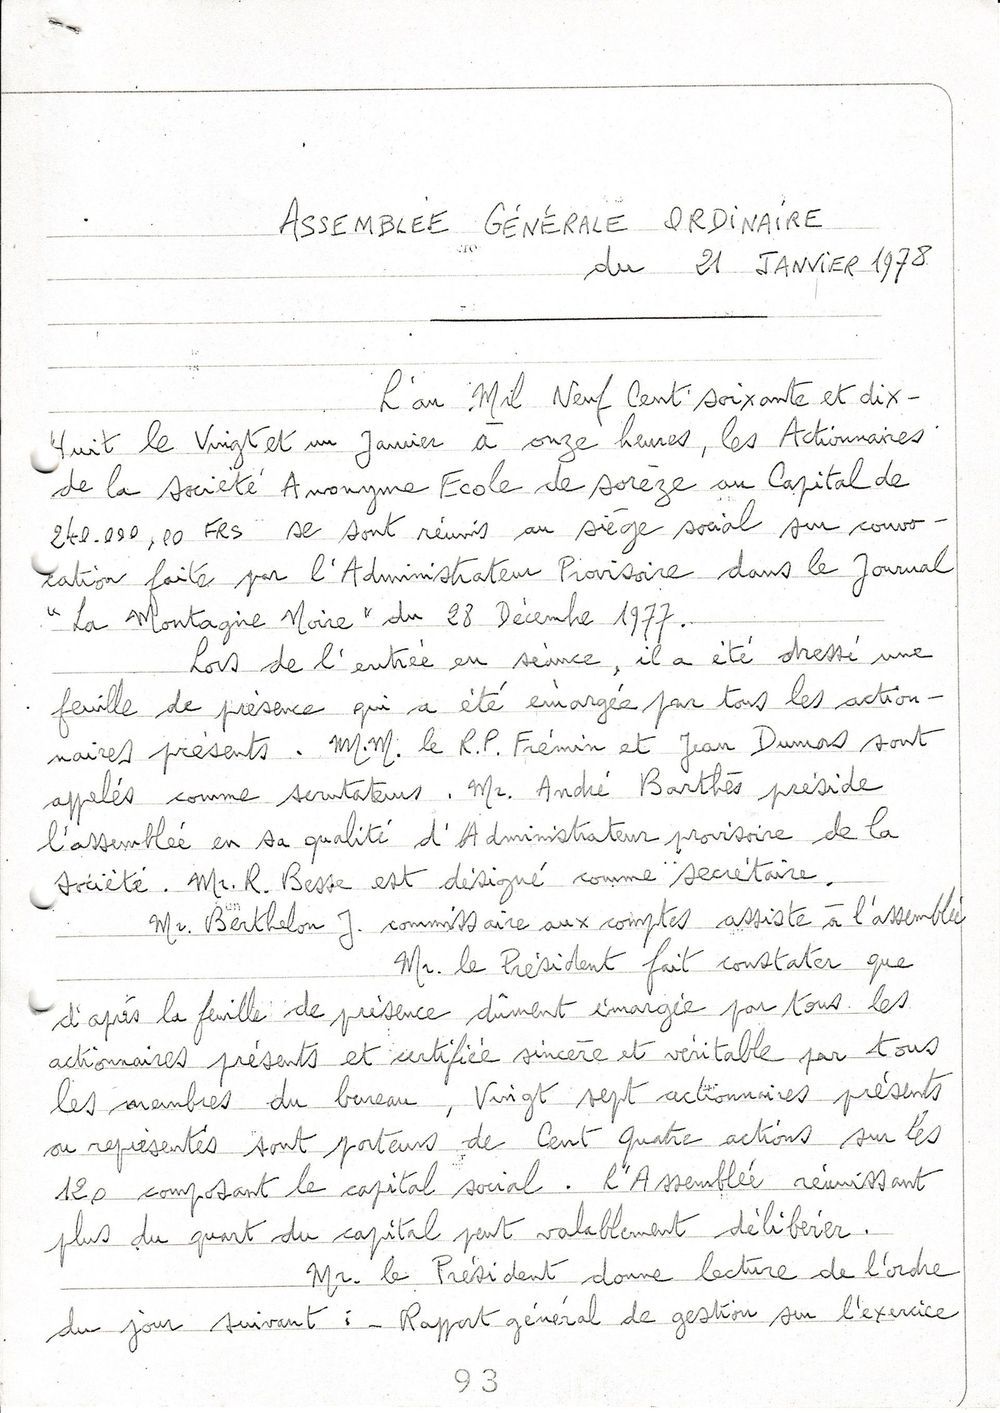 ASSEMBLÉE GÉNÉRALE ORDINAIRE
du 21 JANVIER 1978
L'an Mil Neuf Cent soixante et dix-
huit le Vingt et un Janvier à onze heures, les Actionnaires
de la Société Anonyme Ecole de Sorèze au Capital de
240.000,00 FRS se sont réunis au siège social sur convo-
cation faite par l'Administrateur Provisoire dans le Journal
"La Montagne Noire" du 28 Décembre 1977.
Lors de l'entrée en séance, il a été dressé une
feuille de présence qui a été émargée par tous les action-
naires présents. M.M. le R.P. Frémin et Jean Dumons sont
appelés comme scrutateurs. Mr. André Barthès préside
l'assemblée en sa qualité d'Administrateur provisoire de la
Société. Mr. R. Besse est désigné comme secrétaire.
Mr. Berthelon J. commissaire aux comptes assiste à l'assemblée
Mr. le Président fait constater que
d'après la feuille de présence dûment émargée par tous les
actionnaires présents et certifiée sincère et véritable par tous
les membres du bureau, Vingt sept actionnaires présents
ou représentés sont porteurs de Cent quatre actions sur les
120 composant le capital social. L'Assemblée réunissant
plus du quart du capital peut valablement délibérer.
Mr. le Président donne lecture de l'ordre
du jour suivant : - Rapport général de gestion sur l'exercice
93